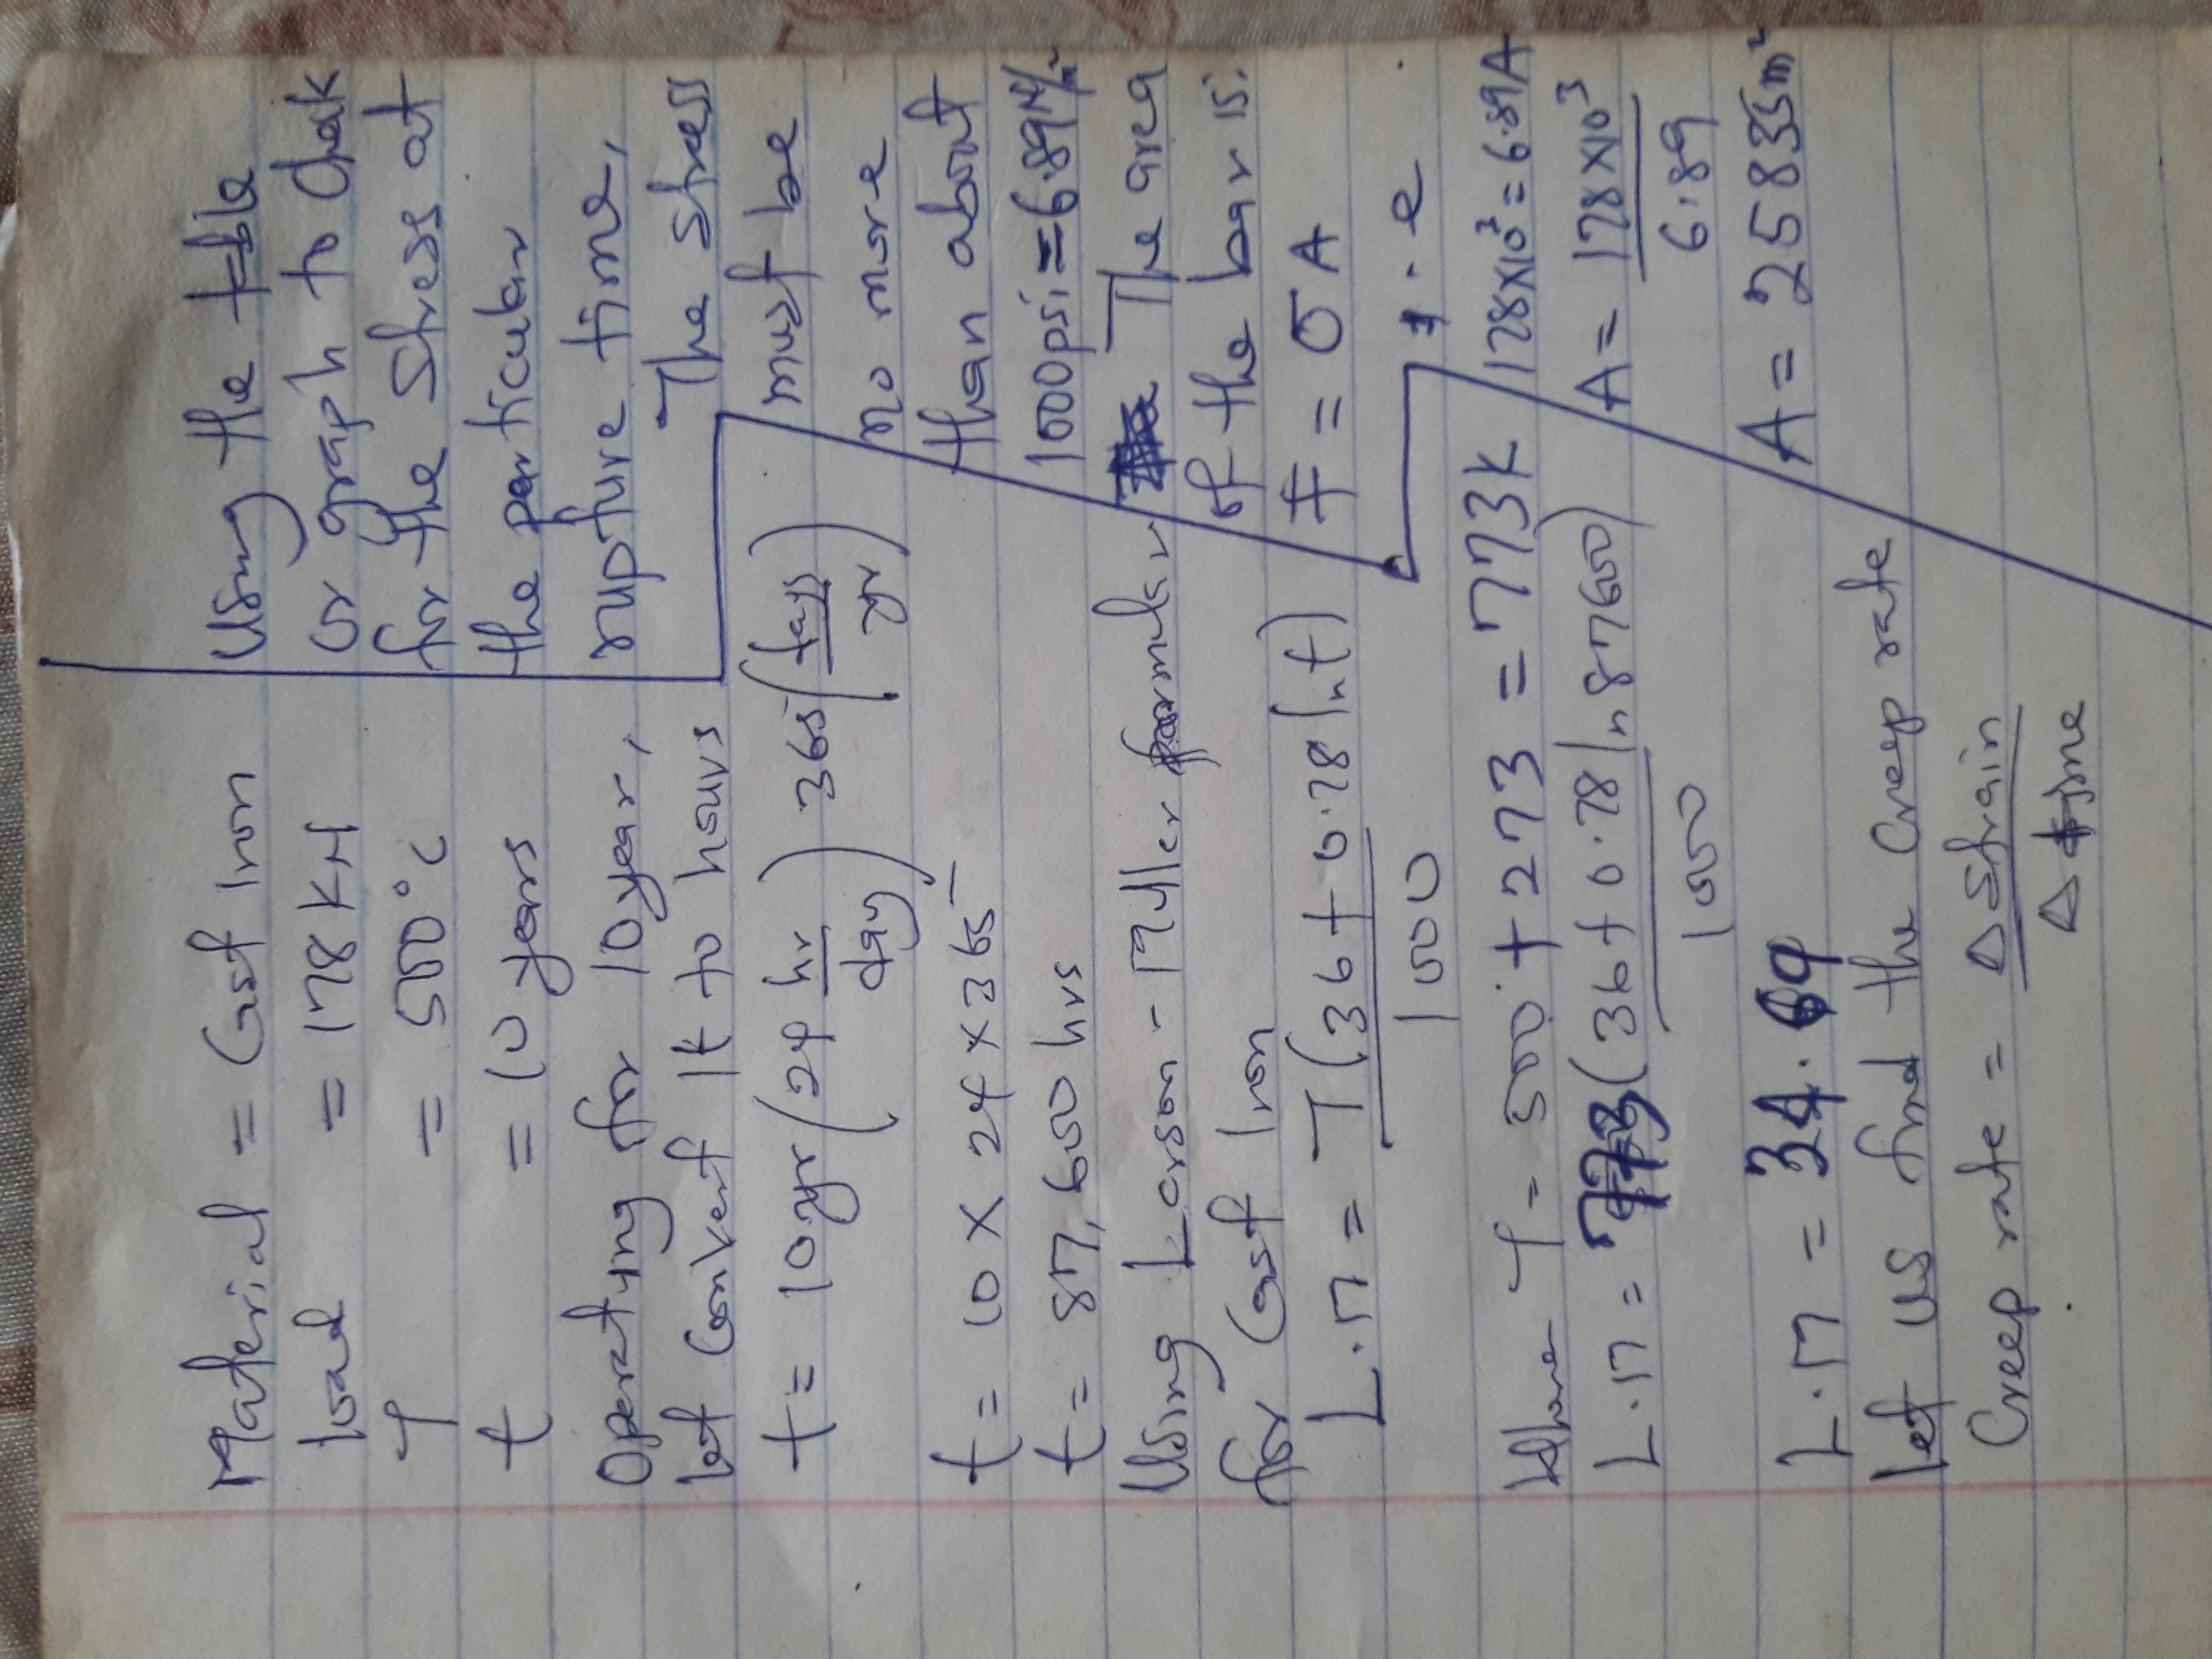 Material = Cast Iron
load = 178 KN
T = 500°C
t = 10 years
Operating for 10year,
let Convert it to hours
t = 10yr (24 hr/day) 365 (days/yr)
t = 10 x 24 x 365
t = 87,600 hrs
Using Larson - Miller formular
for Cast Iron
L.M = T(36 + 0.78 ln t)
1000
Where T = 500 + 273 = 773K
L.M = 773(36 + 0.78 ln 87600)
1000
L.M = 34.69
let us find the Creep rate
Creep rate = Δ Strain
Δ time
Using the table
or graph to Chak
for the Stress at
the particular
rupture time,
The stress
must be
no more
than about
1000psi = 6.89N/m²
The area
of the bar is:
F = σ A
i.e
178x10³ = 6.89A
A = 178 x10³
6.89
A = 25835m²